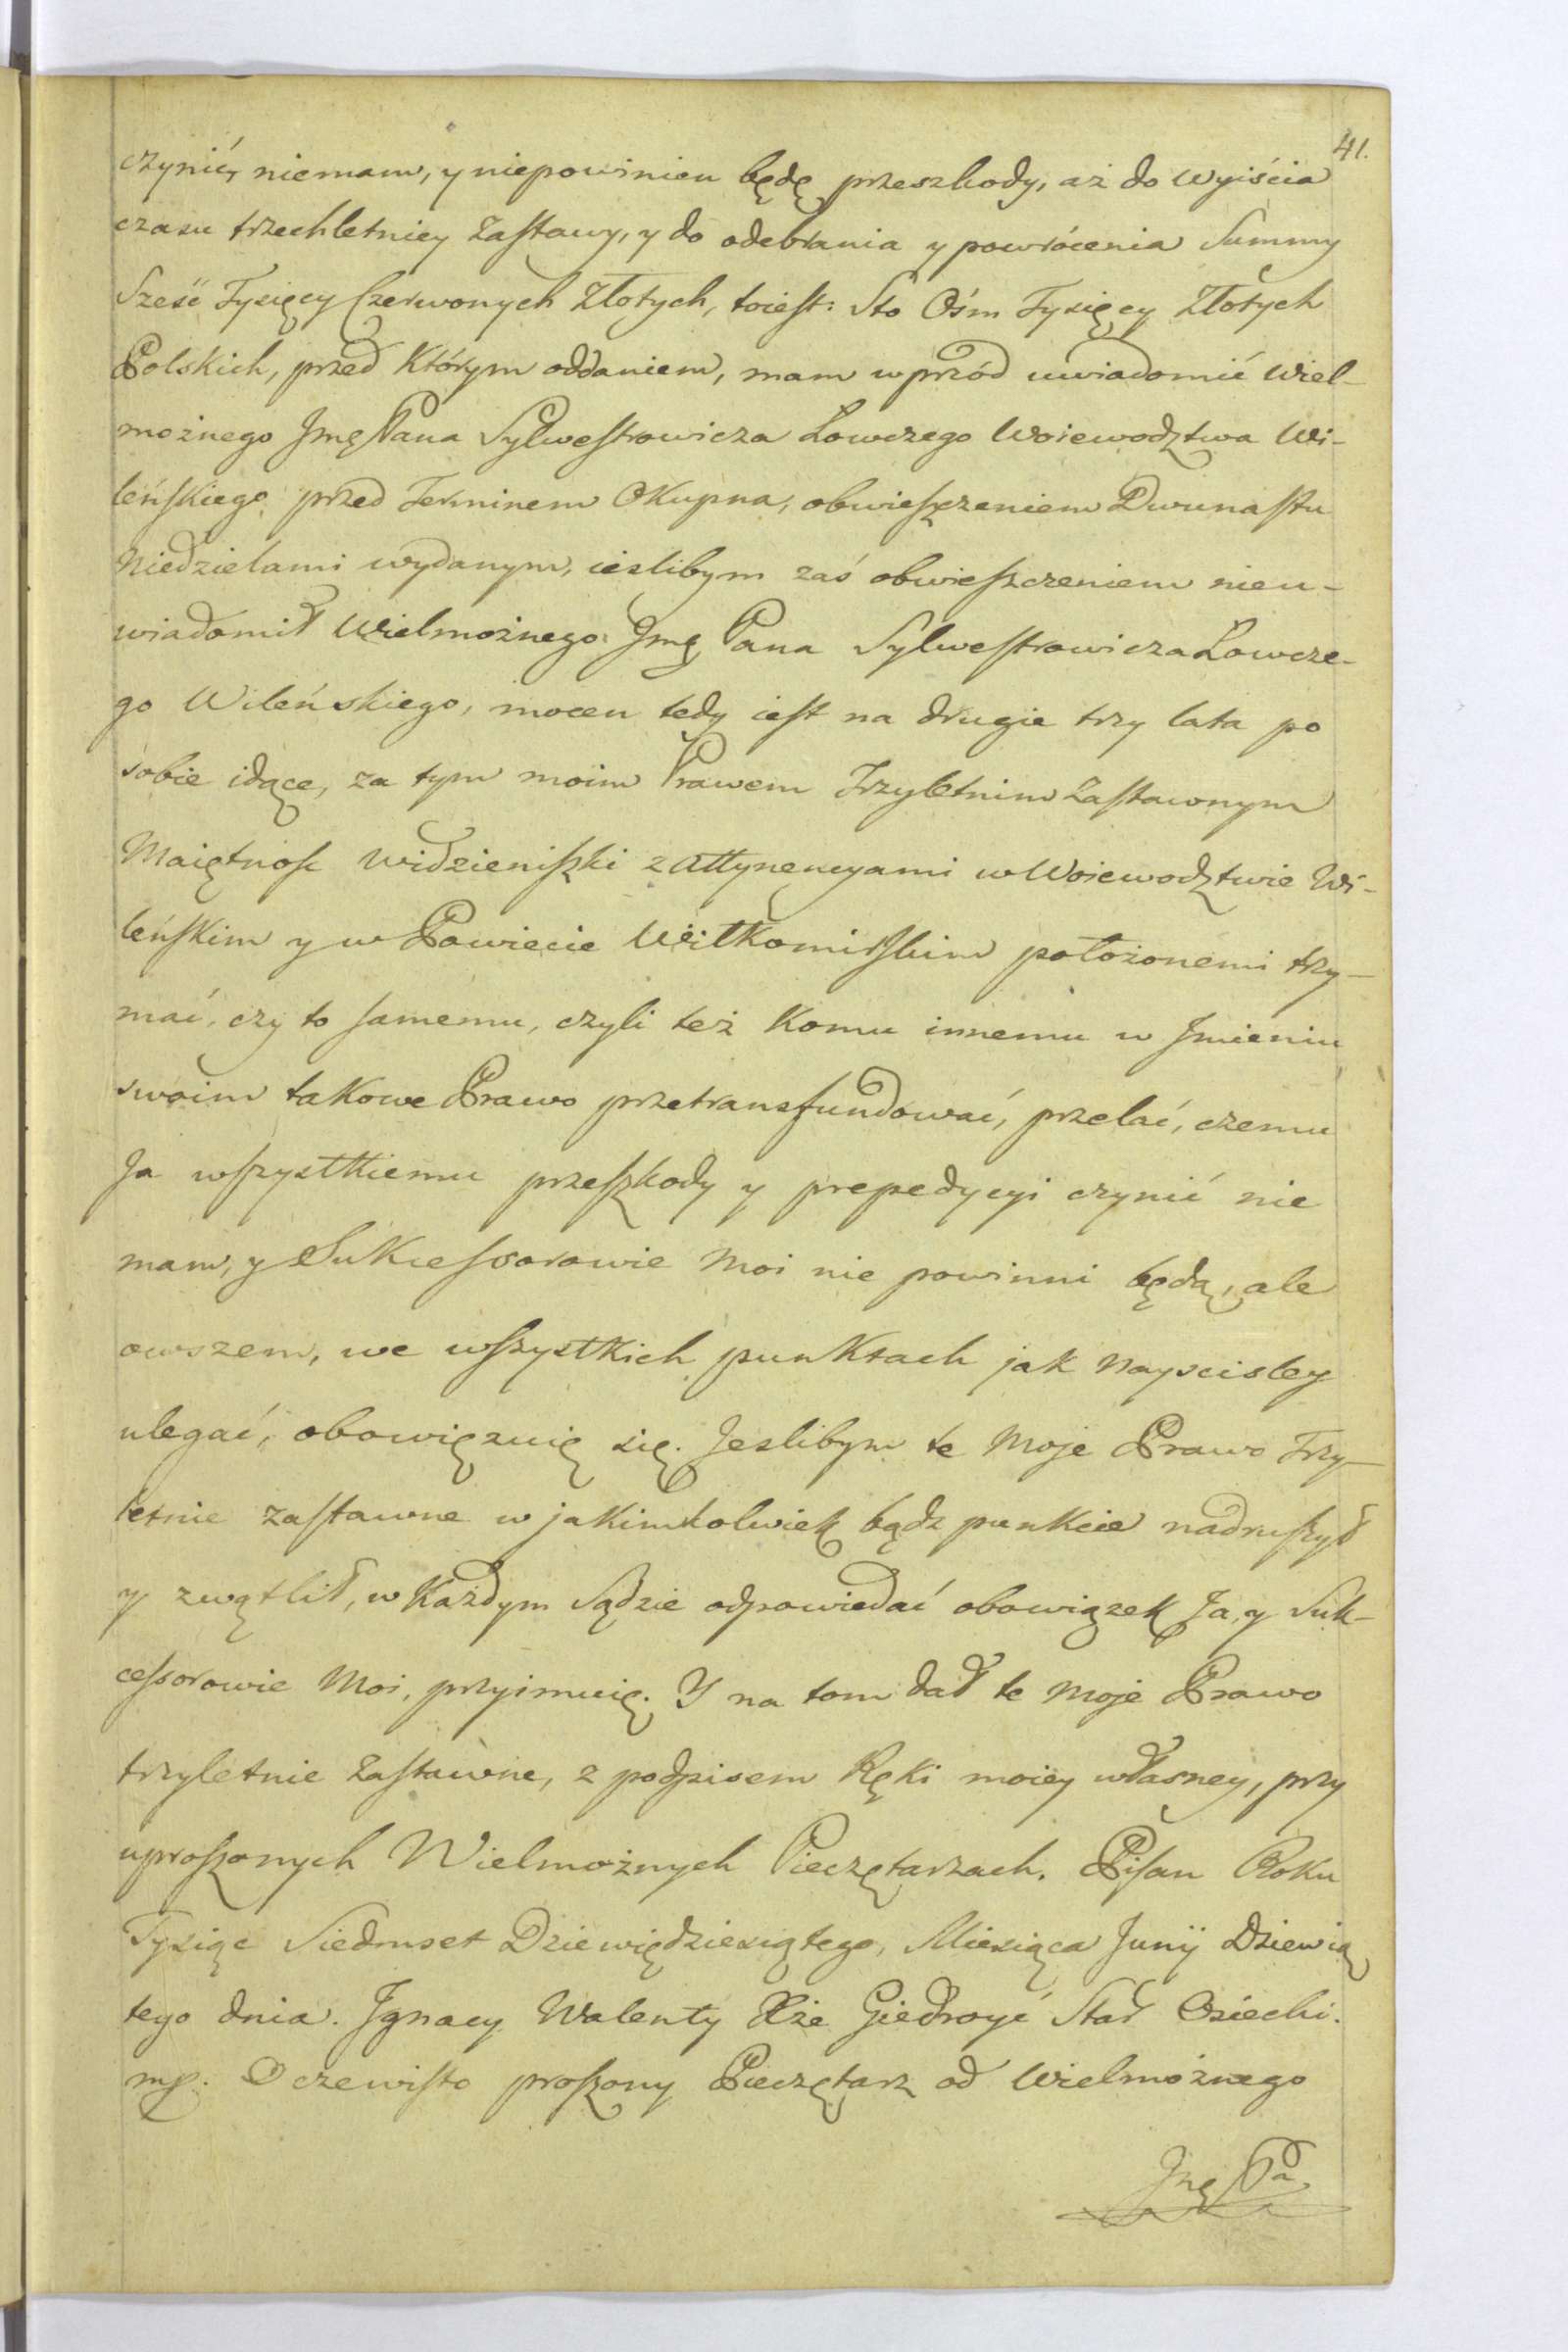 41.
czynić, niemam, y niepowinien będę przeszkody, aż do wyiścia
czasu trzechletniey Zastawy, y do odebrania y powrócenia Summy
Sześć Tysięcy Czerwonych Złotych, toiest: Sto Ośm Tysięcy Złotych
Polskich, przed Którym oddaniem, mam wprzód uwiadomić Wiel-
możnego Jmę Pana Sylwestrowicza Łowczego Woiewodztwa Wi-
leńskiego przed Terminem Okupna, obwieszczeniem Dwunastu
Niedzielami wydanym, ieslibym zaś obwieszczeniem nieu-
wiadomił Wielmożnego Jmę Pana Sylwestrowicza Łowcze-
go Wileńskiego, mocen tedy iest na drugie trzy lata po
sobie idące, za tym moim Prawem Trzyletnim Zastawnym
Maiętnośc Widzieniszki z Attynencyami w Woiewodztwie Wi-
leńskim y w Powiecie Wiłkomirskim położonemi trzy-
mać, czy to samemu, czyli też Komu innemu w Jmieniu
swoim taKowe Prawo przetransfundować, przelać, czemu
Ja wszystkiemu przeszkody y prepedycyi czynić nie
mam, y SuKcessorowie Moi nie powinni będą, ale
owszem, we wszystkich punKtach jak Nayscisley
ulegać, obowięzuię się. Jeslibym te Moje Prawo Trzy-
letnie zastawne w jakimkolwiek bądz punKcie nadruszył
y zwątlił, w Każdym Sądzie odpowiedać obowiązek Ja, y Suk-
cessorowie Moi, przyimuię. Y na tom dał te Moje Prawo
trzyletnie Zastawne, z podpisem RęKi moiey własney, przy
uproszonych Wielmożnych Pieczętarzach. Pisan RoKu
Tysiąc Siedmset Dziewiędziesiątego, Miesiąca Junij Dziewią
tego dnia. Jgnacy Walenty Xże Giedroyć Star Osiecki.
mp. Oczewisto proszony Pieczętarz od Wielmożnego
Jmę Pa